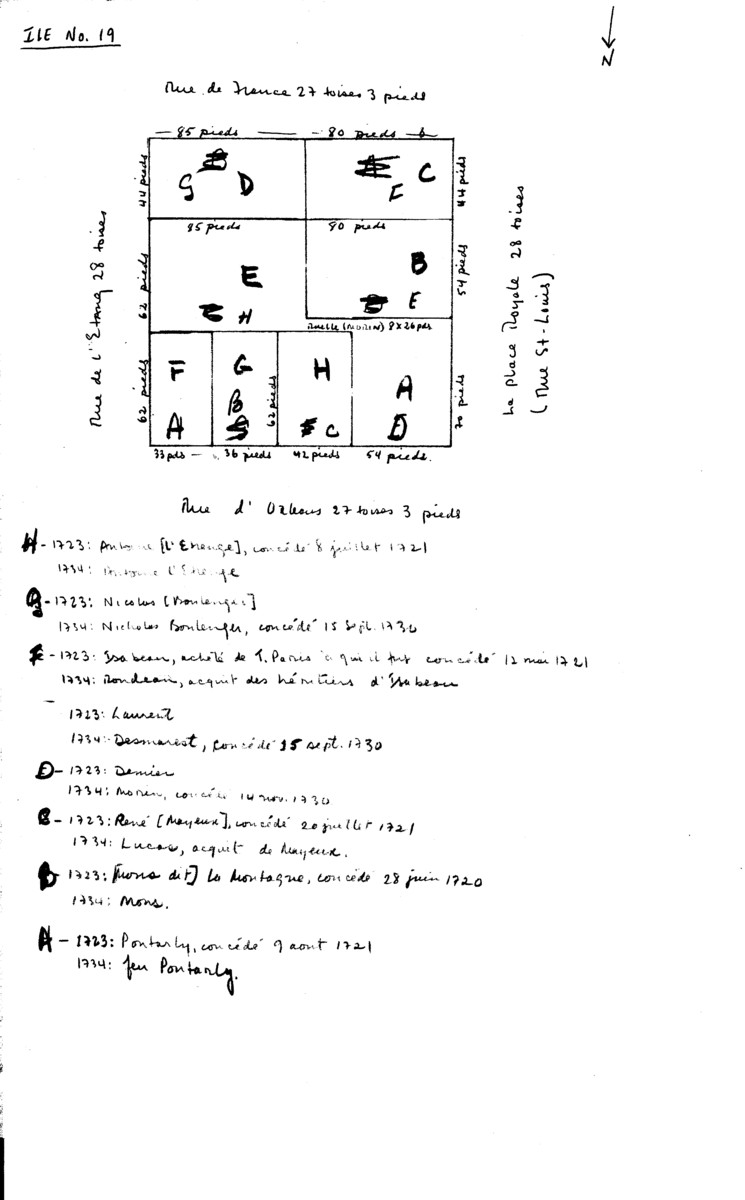 ILE No. 19
N
Rue de France 27 toises 3 pieds
85 pieds 80 pieds
44 pieds
G D
C
F
44 pieds
85 pieds 80 pieds
Rue de L'Etang 28 toises
62 pieds
E
H
B
E
54 pieds
La Place Royale 28 toises
(Rue St-Louis)
Ruelle (MORIN) 8 x 26 pds
62 pieds
F
A
G
B
62 pieds
H
C
A
D
70 pieds
33 pds 36 pieds 42 pieds 54 pieds.
Rue d' Orleans 27 toises 3 pieds
H - 1723: Antoine [L'Etenge], concédé 8 juillet 1721
1734: Antoine L'Etenge
G - 1723: Nicolas [Boulenger]
1734: Nicholas Boulenger, concédé 15 Sept. 1730
1723: Isabeau, acheté de T. Paris à qui il fut concédé 12 mai 1721
1734: Rondeau, acquit des héritiers d'Isabeau
1723: Laurent
1734: Desmarest, concédé 15 sept. 1730
D - 1723: Demier
1734: Morin, concédé 14 nov. 1730
C - 1723: René [Mayeux], concédé 20 juillet 1721
1734: Lucas, acquit de Mayeux.
B 1723: [Mons dit] La Montagne, concédé 28 juin 1720
1734: Mons.
A - 1723: Pontarly, concédé 9 aout 1721
1734: feu Pontarly.